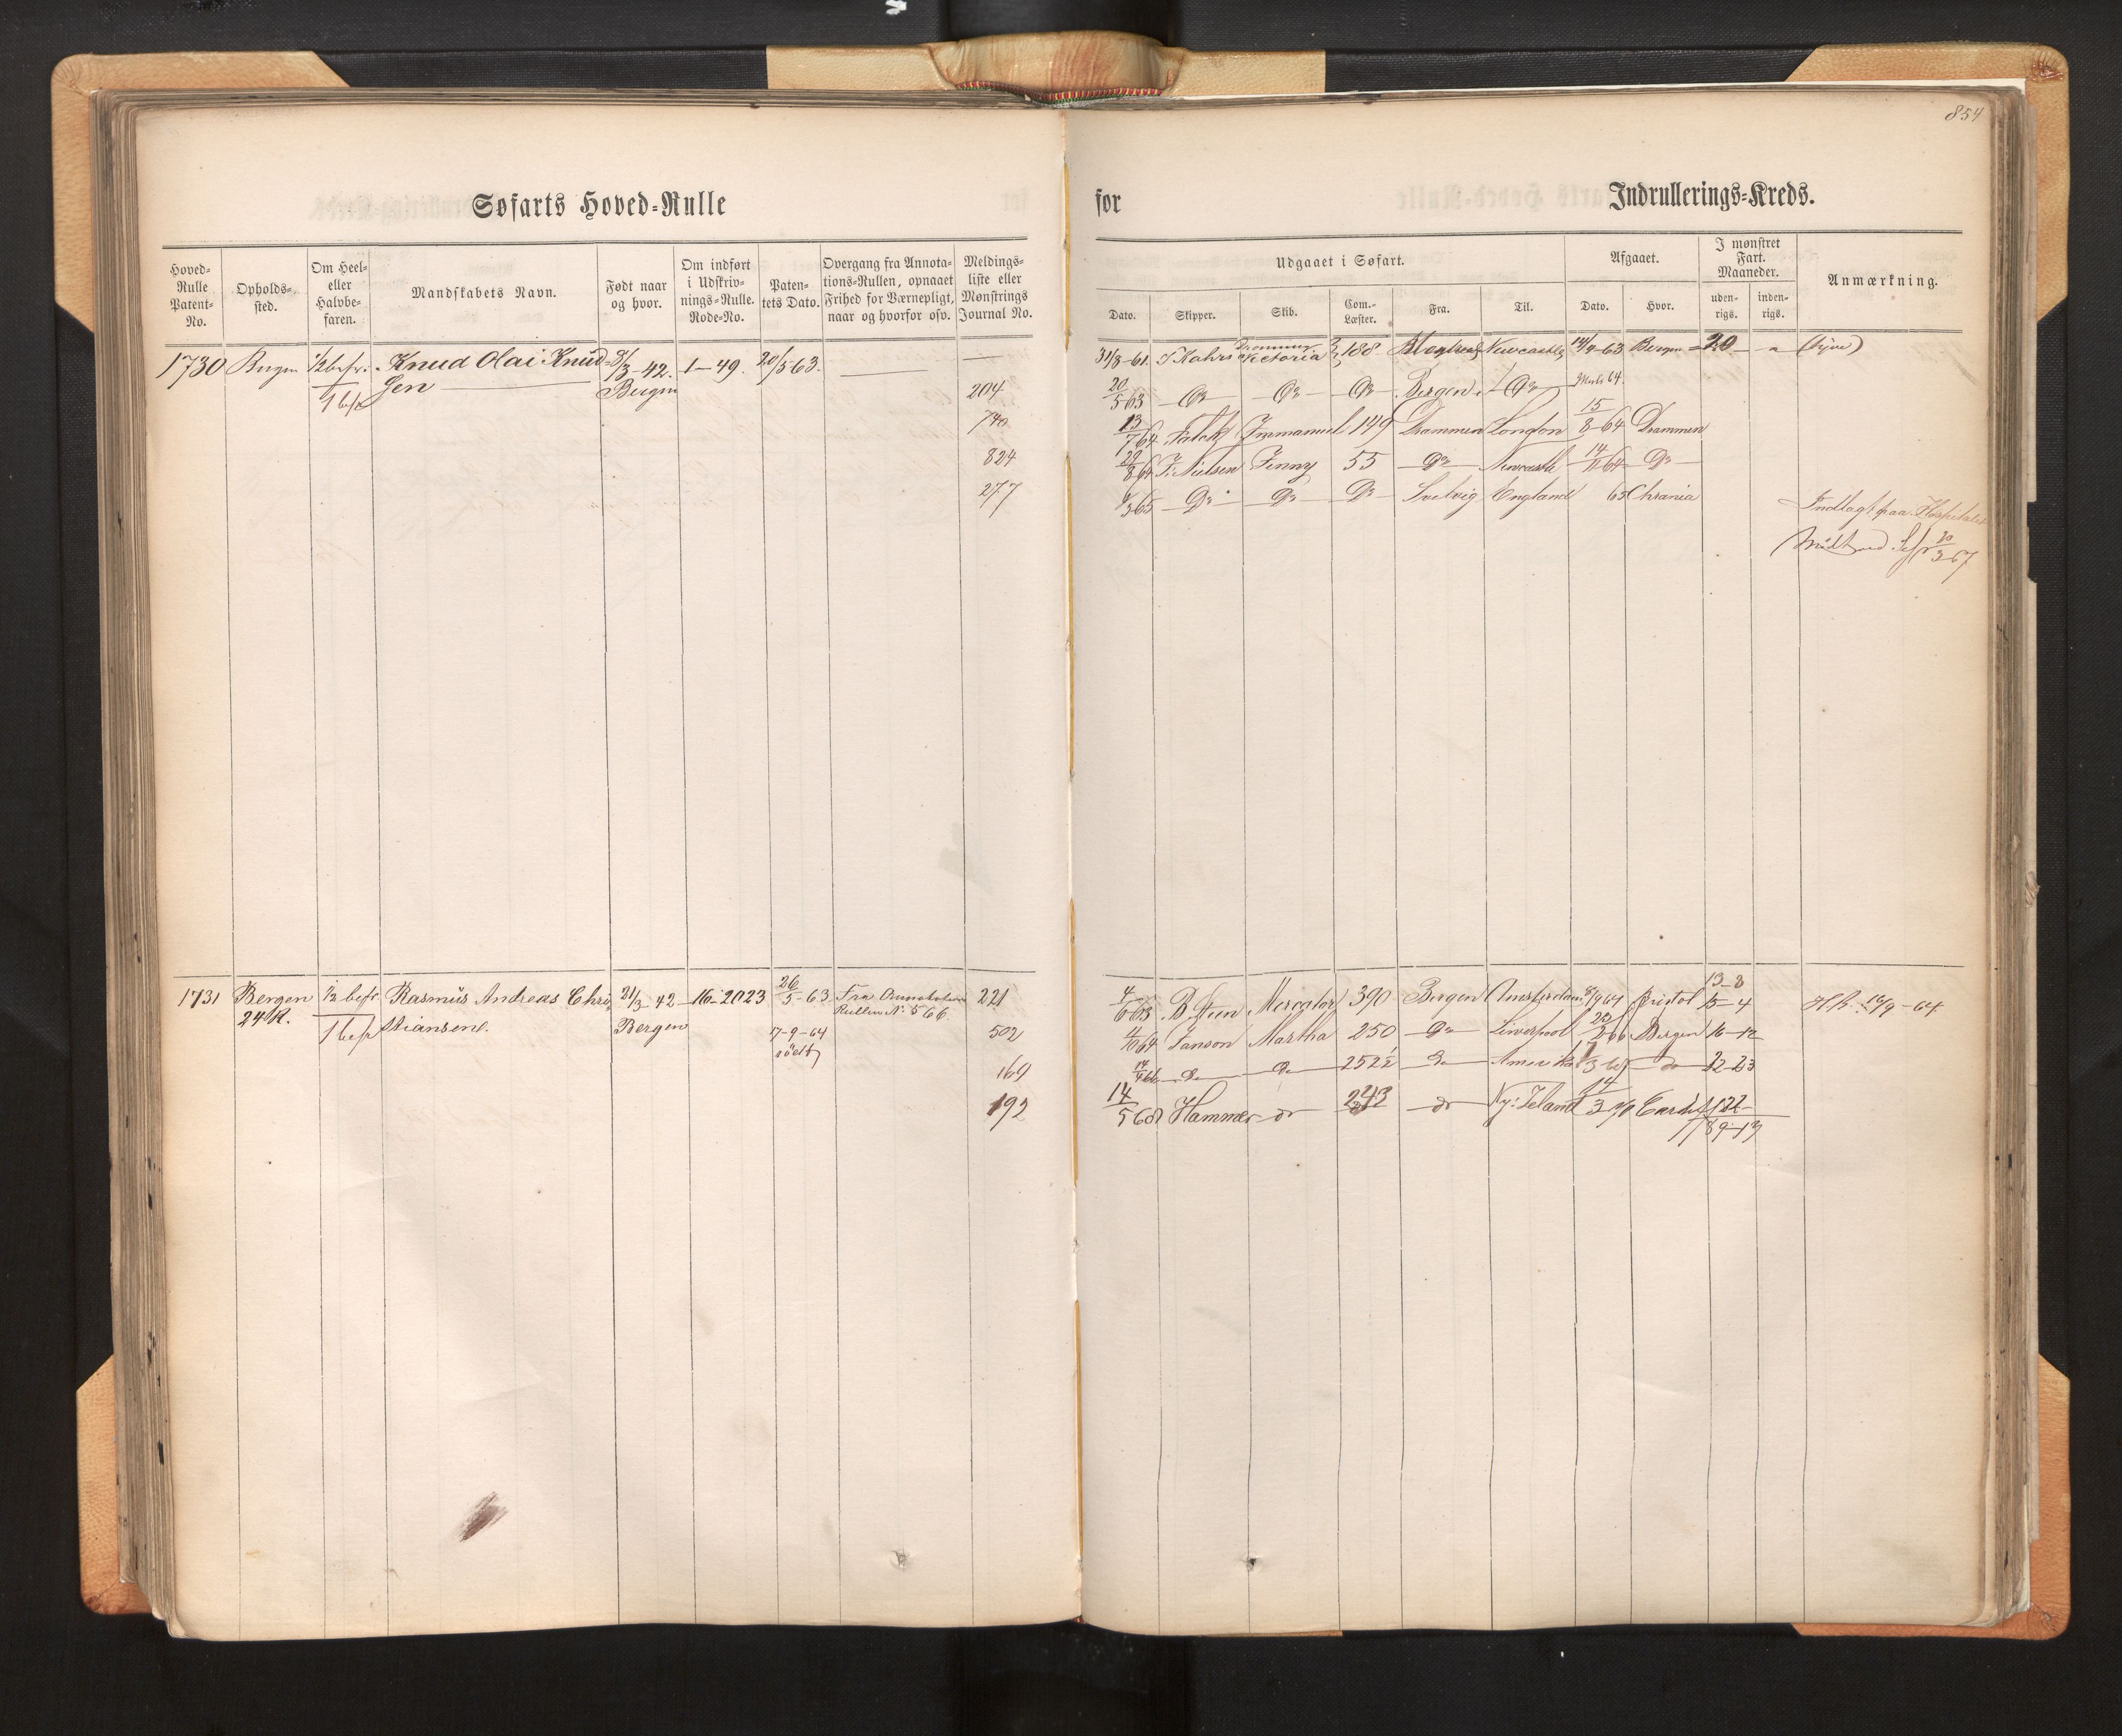 854
Søfarts Hoved-Rulle
for Indrullerings-Kreds.
Hoved-Rulle Patent-No.
Opholds-sted.
Om Heel- eller Halvbe-faren.
Mandskabets Navn.
Født naar og hvor.
Om indført i Udskriv-nings-Rulle. Rode-No.
Paten-tets Dato.
Overgang fra Annota-tions-Rullen, opnaaet Frihed for Værnepligt, naar og hvorfor osv.
Meldings-liste eller Mønstrings Journal No.
Udgaaet i Søfart.
Afgaaet.
I mønstret Fart. Maaneder.
Anmærkning.
Dato. Skipper. Skib. Com.-Læster. Fra. Til. Dato. Hvor. uden-rigs. inden-rigs.
1730 Bergen 1/2 bef. Knud Olai Knud- 8/3-42. 1-49. 20/5 63. —
sen Bergen
1 bef
204
740
824
277
31/8-61 Kahrs Dronning Victoria 188 Newcastle 14/4-63 Bergen 20 (tyve)
20/5 63 Do Do Do Bergen Do 64
13/7 64 Falck Immanuel 149 Drammen London 15/8-64 Drammen
29/8 64 Nielsen Fenny 55 Do Newcastle 14/11 64 Do
65 Do Do Do Svelvig England 65 Chrania
Indlagt paa Hospitalet
20/3 67
1731 Bergen 1/2 befr Rasmus Andreas Chri- 21/3-42 16-2023 26/5-63 Fra Annotations 221
24 R. 1 bef stiansen. Bergen 17-9-64 Rullen No 566.
502
169
192
4/6 63 B. Mercator 390 Bergen Amsterdam 8/9 64 Bristol 13-8
15-4
16/9-64
4/10 64 Janson Martha 250 Do Liverpool 66 Bergen 16-12
14/4 66 do do 252½ do Amerika do 22-23
14/5 68 Hammer do 243 do Ny: Zeland 14/3 70 Cardiff
89-13